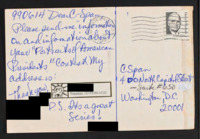 990614 Dear C-Span,
Please send me information
on and information about
your "Portraits of American
Presidents" Contest. My
address is:
Thank you,
P.S. It's a great
Series!
C-Span
400 North Capitol Street
Suite 650
Washington D.C.
20001